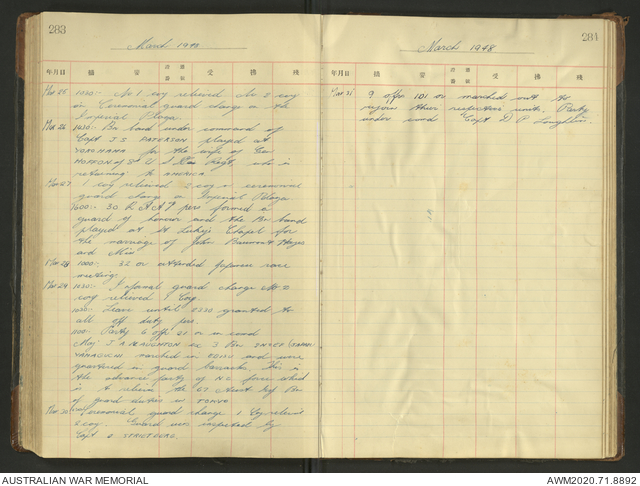 283
March 1948
年月日 摘 要 受 拂 残
Mar 25 1030:- No 1 coy relieved No 2 coy
in Ceremonial guard change on the
Imperial Plaza.
Mar 26 1430:- Bn band under command of
Capt J S PATERSON played at
YOKOHAMA for the wife of
of US Regt, who is
returning to AMERICA
Mar 27 1 coy relieved 2 coy in ceremonial
guard change on Imperial Plaza
1600:- 30 pers formed a
guard of honour and the Bn band
played at St Luke's Chapel for
the marriage of John Beaumont Hayes
and Miss
Mar 28 1000:- 32 or attended Japanese race
meeting.
Mar 29 1030:- Informal guard change No 2
coy relieved 1 Coy.
1030:- Leave until 2230 granted to
all off duty pers.
1100:- Party 6 offrs or in comd
Maj J A NAUGHTON ex 3 Bn
YAMAGUCHI marched in and were
quartered in guard barracks. This is
the advance party of NZ force which
is to relieve the 67 Aust Inf Bn
of guard duties in TOKYO
Mar 30 Ceremonial guard change 1 Coy relieve
2 coy. Guard was inspected by
Capt
284
March 1948
年月日 摘 要 受 拂 残
Mar 31 9 offrs 101 or marched out to
rejoin their respective units. Party
under comd Capt D P Loughlin.
AUSTRALIAN WAR MEMORIAL
AWM2020.71.8892